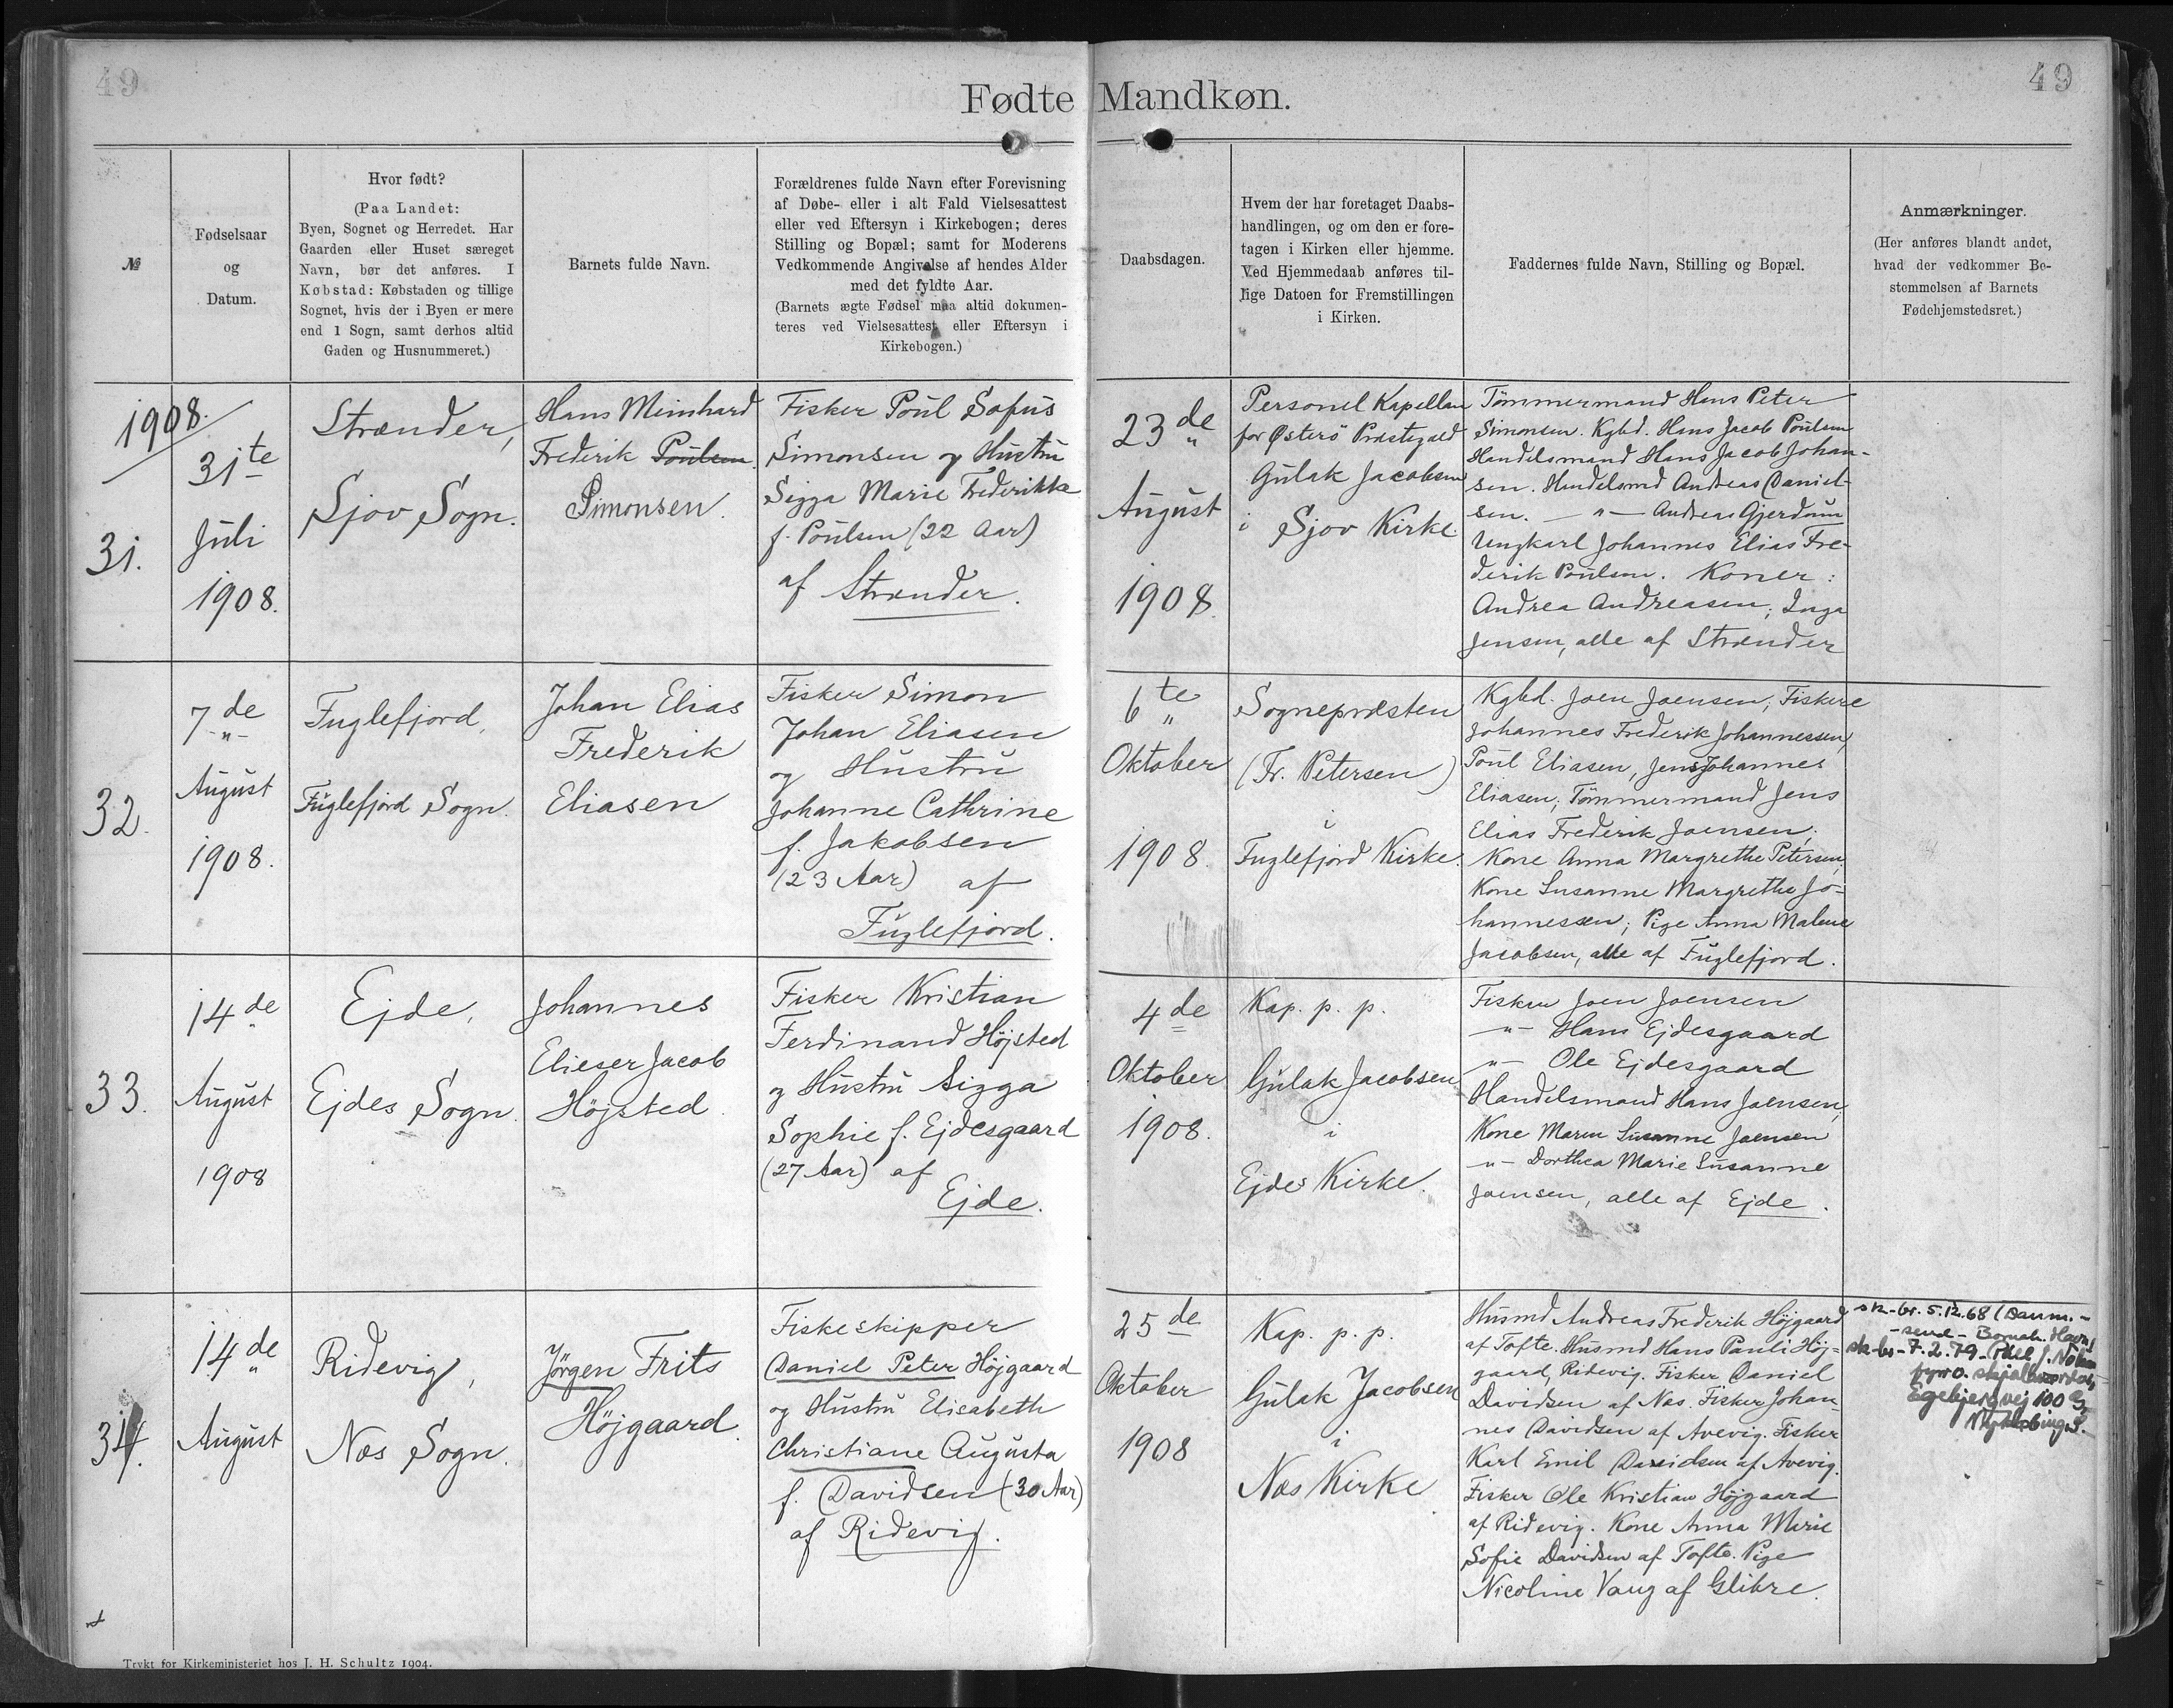 49
49
Fødte Mandkøn.
№
Fødselsaar
og
Datum.
Hvor født?
(Paa Landet:
Byen, Sognet og Herredet. Har
Gaarden eller Huset særeget
Navn, bør det anføres. I
Købstad: Købstaden og tillige
Sognet, hvis der i Byen er mere
end 1 Sogn, samt derhos altid
Gaden og Husnummeret.)
Barnets fulde Navn.
Forældrenes fulde Navn efter Forevisning
af Døbe- eller i alt Fald Vielsesattest
eller ved Eftersyn i Kirkebogen; deres
Stilling og Bopæl; samt for Moderens
Vedkommende Angivelse af hendes Alder
med det fyldte Aar.
(Barnets ægte Fødsel maa altid dokumen-
teres ved Vielsesattest eller Eftersyn i
Kirkebogen.)
Daabsdagen.
Hvem der har foretaget Daabs-
handlingen, og om den er fore-
tagen i Kirken eller hjemme.
Ved Hjemmedaab anføres til-
lige Datoen for Fremstillingen
i Kirken.
Faddernes fulde Navn, Stilling og Bopæl.
Anmærkninger.
(Her anføres blandt andet,
hvad der vedkommer Be-
stemmelsen af Barnets
Fødehjemstedsret.)
1908.
31.
31te
Juli
1908.
Strænder,
Sjov Sogn.
Hans Meinhard
Frederik Poulsen
Simonsen.
Fisker Poul Sofus
Simonsen og Hustru
Sigga Marie Frederikka
f. Poulsen (22 Aar)
af Strænder.
23de
August
1908.
Personel Kapellan
for Østerö Præstegæld
Gulak Jacobsen
i Sjov Kirke.
Tömmermand Hans Peter
Simonsen. Kgbd. Hans Jacob Poulsen
Handelsmand Hans Jacob Johan-
sen. Handelsmd Andreas Daniel-
sen. —"— Andreas Gjerdum
Ungkarl Johannes Elias Fre-
derik Poulsen. Koner:
Andrea Andreasen, Inga
Jensen, alle af Strænder
32.
7de
August
1908.
Fuglefjord,
Fuglefjord Sogn.
Johan Elias
Frederik
Eliasen
Fisker Simon
Johan Eliasen
og Hustru
Johanne Cathrine
f. Jakobsen
(23 Aar) af
Fuglefjord.
6te
Oktober
1908.
Sognepræsten
(Fr. Petersen)
i
Fuglefjord Kirke.
Kgbd. Joen Joensen; Fiskere
Johannes Frederik Johannessen,
Poul Eliasen, Jens Johannes
Eliasen; Tömmermand Jens
Elias Frederik Joensen;
Kone Anna Margrethe Petersen,
Kone Susanne Margrethe Jo-
hannessen; Pige Anna Malene
Jacobsen, alle af Fuglefjord.
33.
14de
August
1908
Ejde,
Ejdes Sogn.
Johannes
Elieser Jacob
Höjsted.
Fisker Kristian
Ferdinand Höjsted
og Hustru Sigga
Sophie f. Ejdesgaard
(27 Aar) af
Ejde.
4de
Oktober
1908.
Kap. p. p.
Gulak Jacobsen
i
Ejdes Kirke.
Fisker Joen Joensen
—"— Hans Ejdesgaard
—"— Ole Ejdesgaard
Handelsmand Hans Joensen,
Kone Maren Susanne Joensen
—"— Dorthea Marie Susanne
Joensen, alle af Ejde.
34.
14de
August
Ridevig,
Næs Sogn.
Jörgen Frits
Höjgaard.
Fiskeskipper
Daniel Peter Höjgaard
og Hustru Elisabeth
Christiane Augusta
f. Davidsen (30 Aar)
af Ridevig.
25de
Oktober
1908
Kap. p. p.
Gulak Jacobsen
i
Næs Kirke
Husmd Andreas Frederik Höjgaard
af Tofte. Husmd Hans Pauli Höj-
gaard, Ridevig. Fisker Daniel
Davidsen af Næs. Fisker Johan-
nes Davidsen af Avevig. Fisker
Karl Emil Davidsen af Avevig.
Fisker Ole Kristian Höjgaard
af Ridevig. Kone Anna Marie
Sofie Davidsen af Tofte. Pige
Nicoline Vang af Glibre.
sk-br. 5.12.68
sk-br- 7.2.79
Egebjergvej 100
Trykt for Kirkeministeriet hos J. H. Schultz 1904.